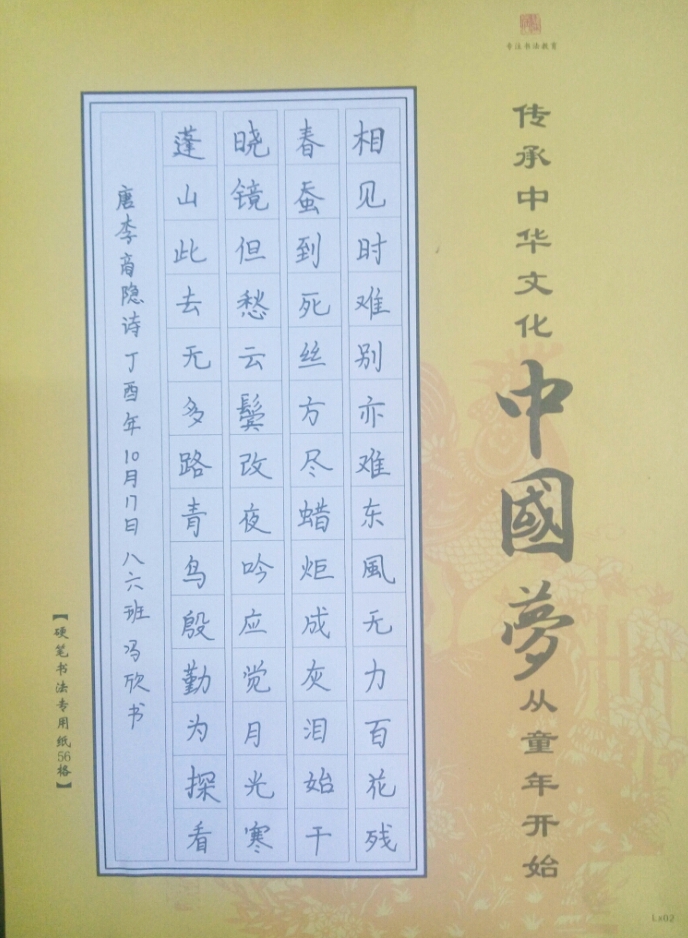 专注书法教育
传承中华文化
中國夢
从童年开始
相见时难别亦难东風无力百花残
春蚕到死丝方尽蜡炬成灰泪始干
晓镜但愁云鬓改夜吟应觉月光寒
蓬山此去无多路青鸟殷勤为探看
唐李商隐诗丁酉年10月17日八六班冯欣书
【硬笔书法专用纸56格】
Ls02